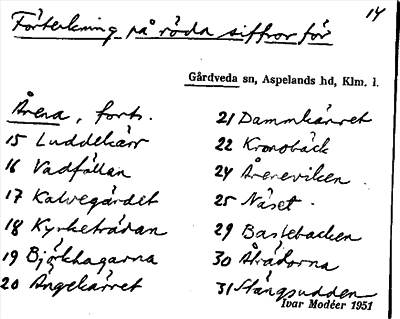 14
Förteckning på röda siffror för
Gårdveda sn, Aspelands hd, Klm. l.
Årena, forts.
15 Luddekärr
16 Vadfällan
17 Kalvegärdet
18 Kyrketrädan
19 Björkhagarna
20 Ängekärret
21 Dammkärret
22 Kronobäck
24 Åreneviken
25 Näset.
29 Bastebacken
30 Åträdorna
31 Stångsudden
Ivar Modéer 1951